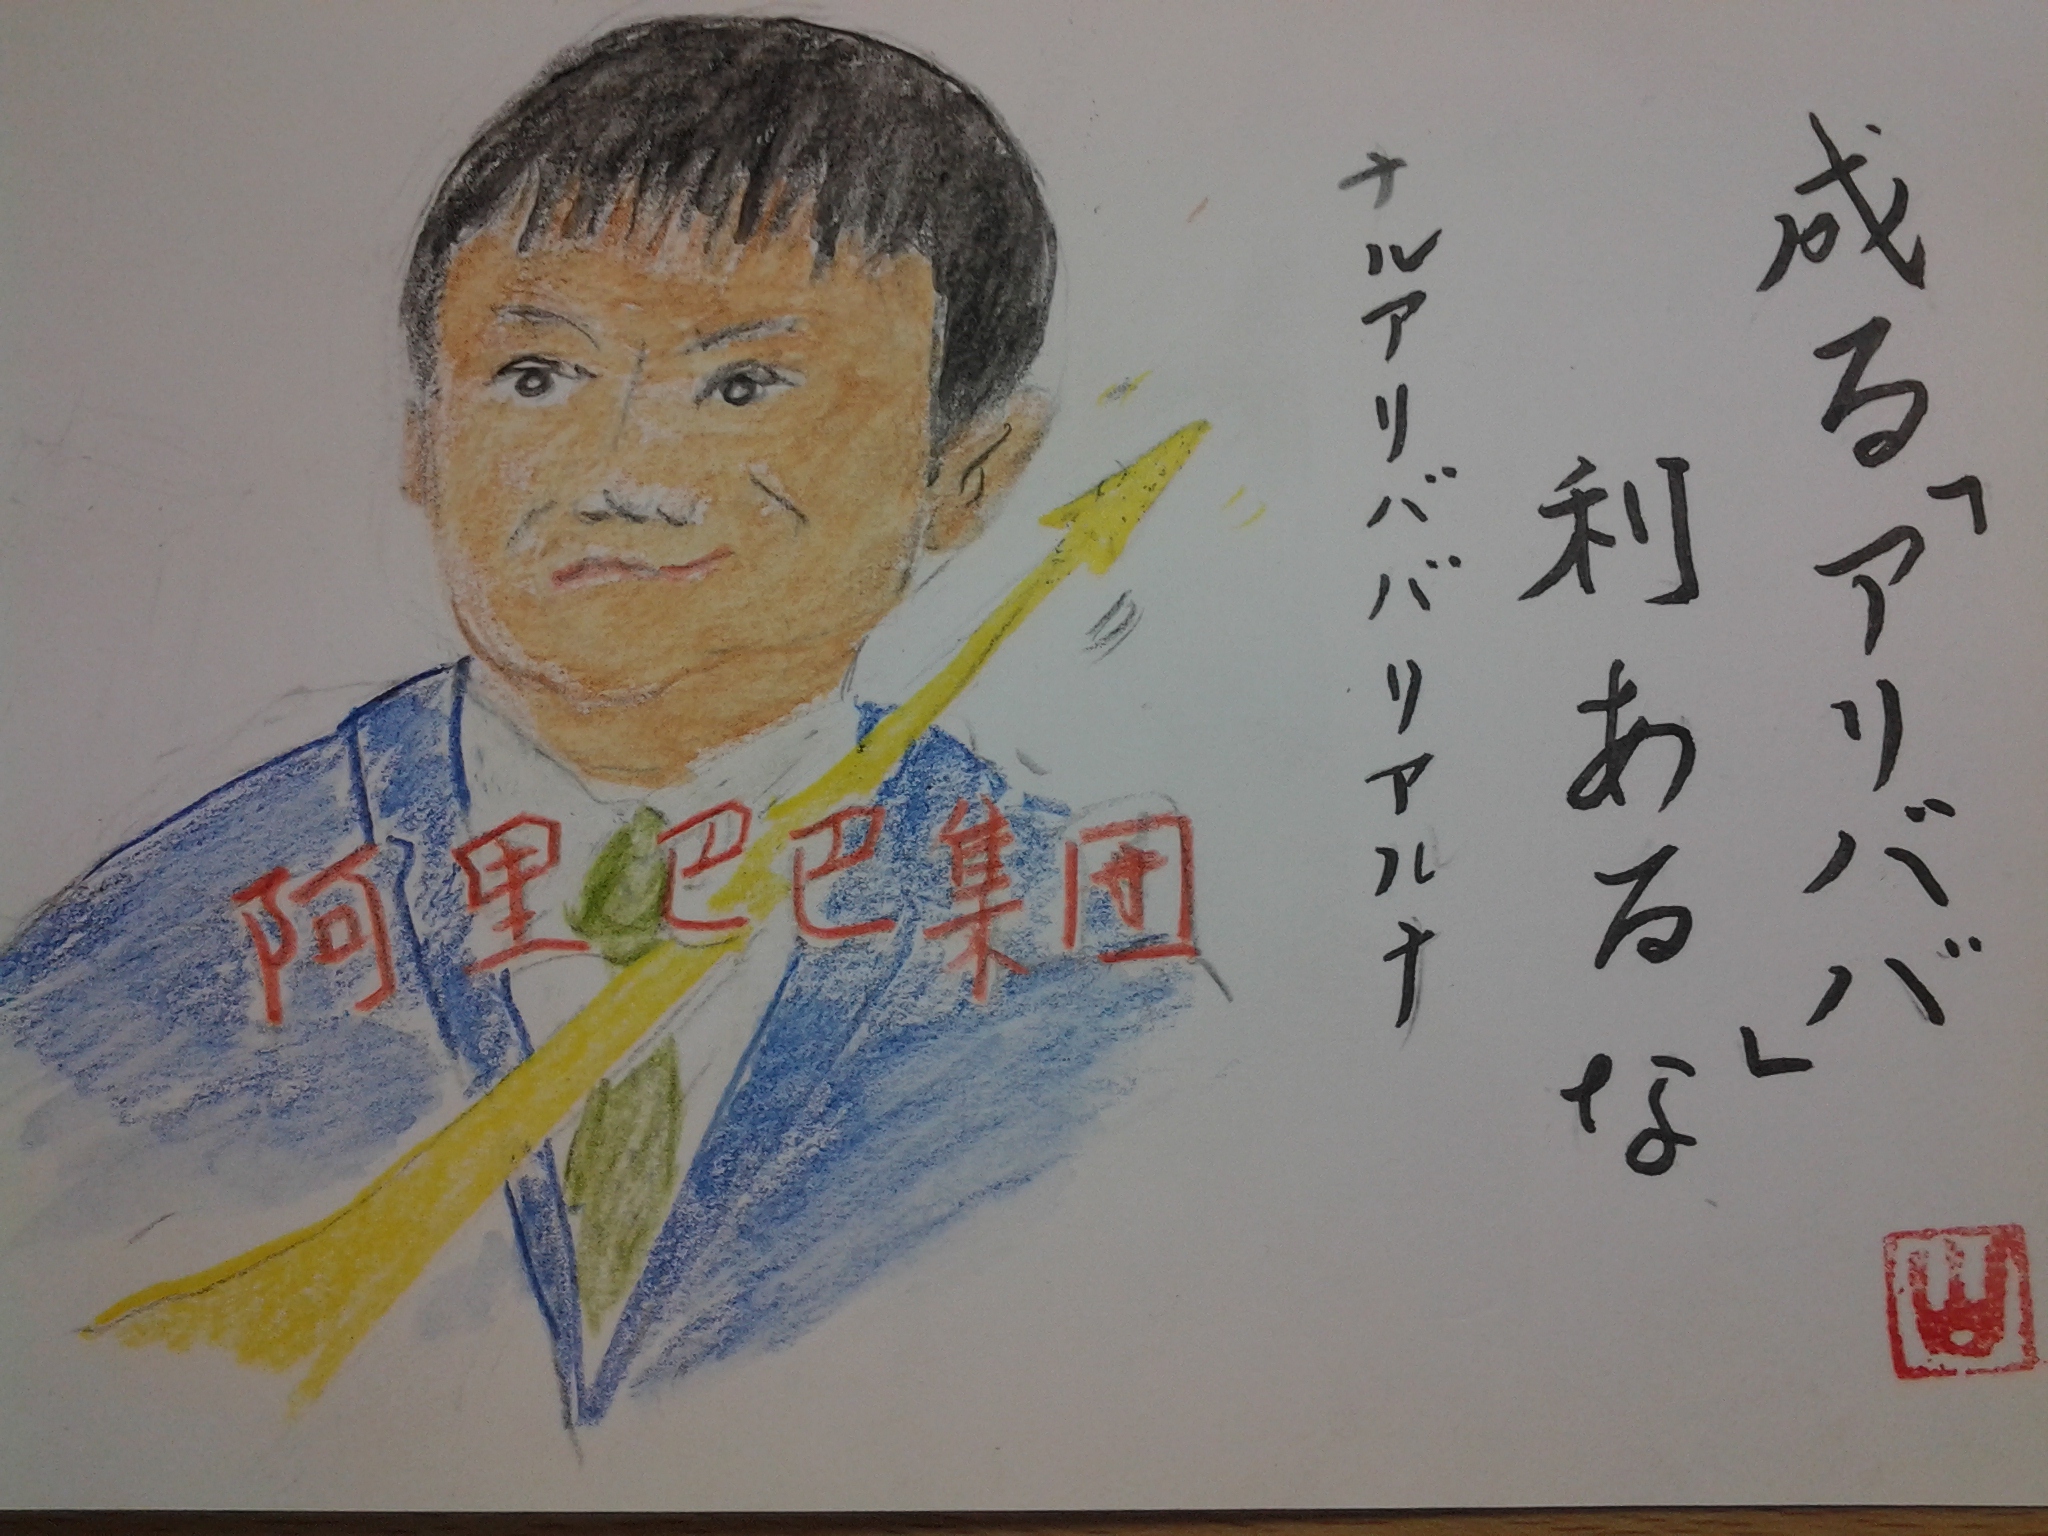 成る「アリババ」
利あるな
ナルアリババリアルナ
阿里巴巴集団